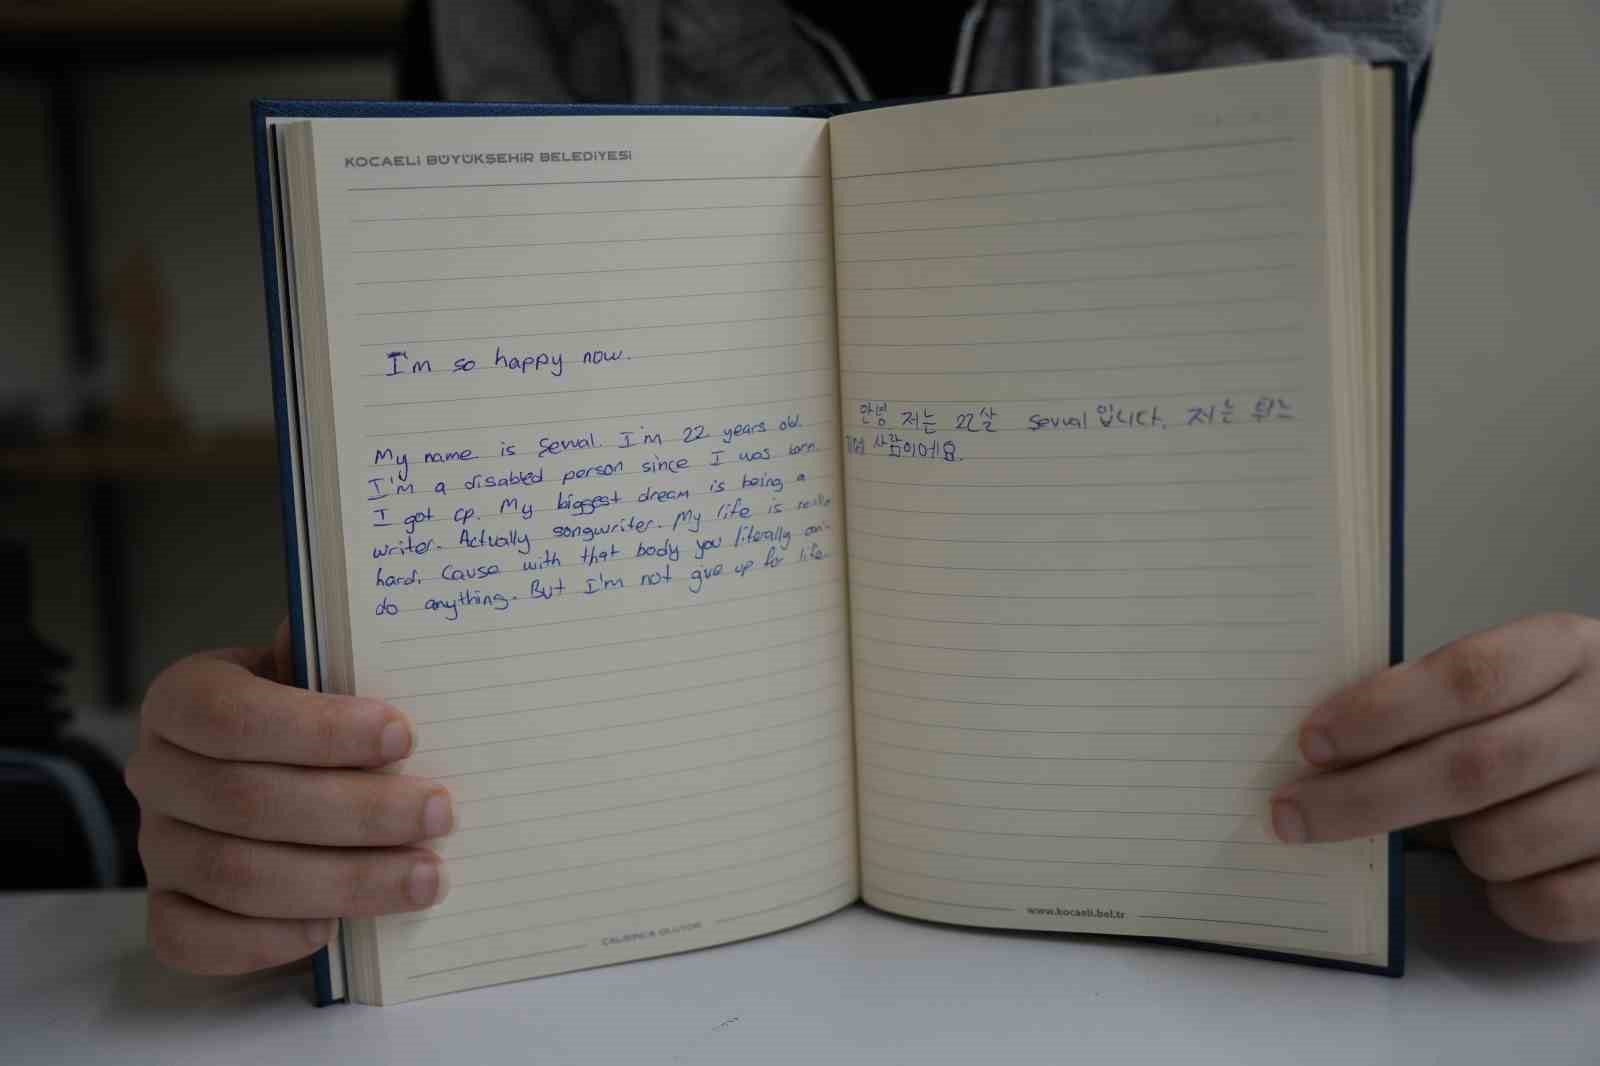 KOCAELİ BÜYÜKŞEHİR BELEDİYESİ
I'm so happy now.
My name is Şevval. I'm 22 years old.
I'm a disabled person since I was born.
I got cp. My biggest dream is being a
writer. Actually songwriter. My life is really
hard. Cause with that body you literally can't
do anything. But I'm not give up for life.
ÇALIŞINCA OLUYOR
안녕 저는 22살 Sevval 입니다. 저는 튀르
사람이에요.
www.kocaeli.bel.tr